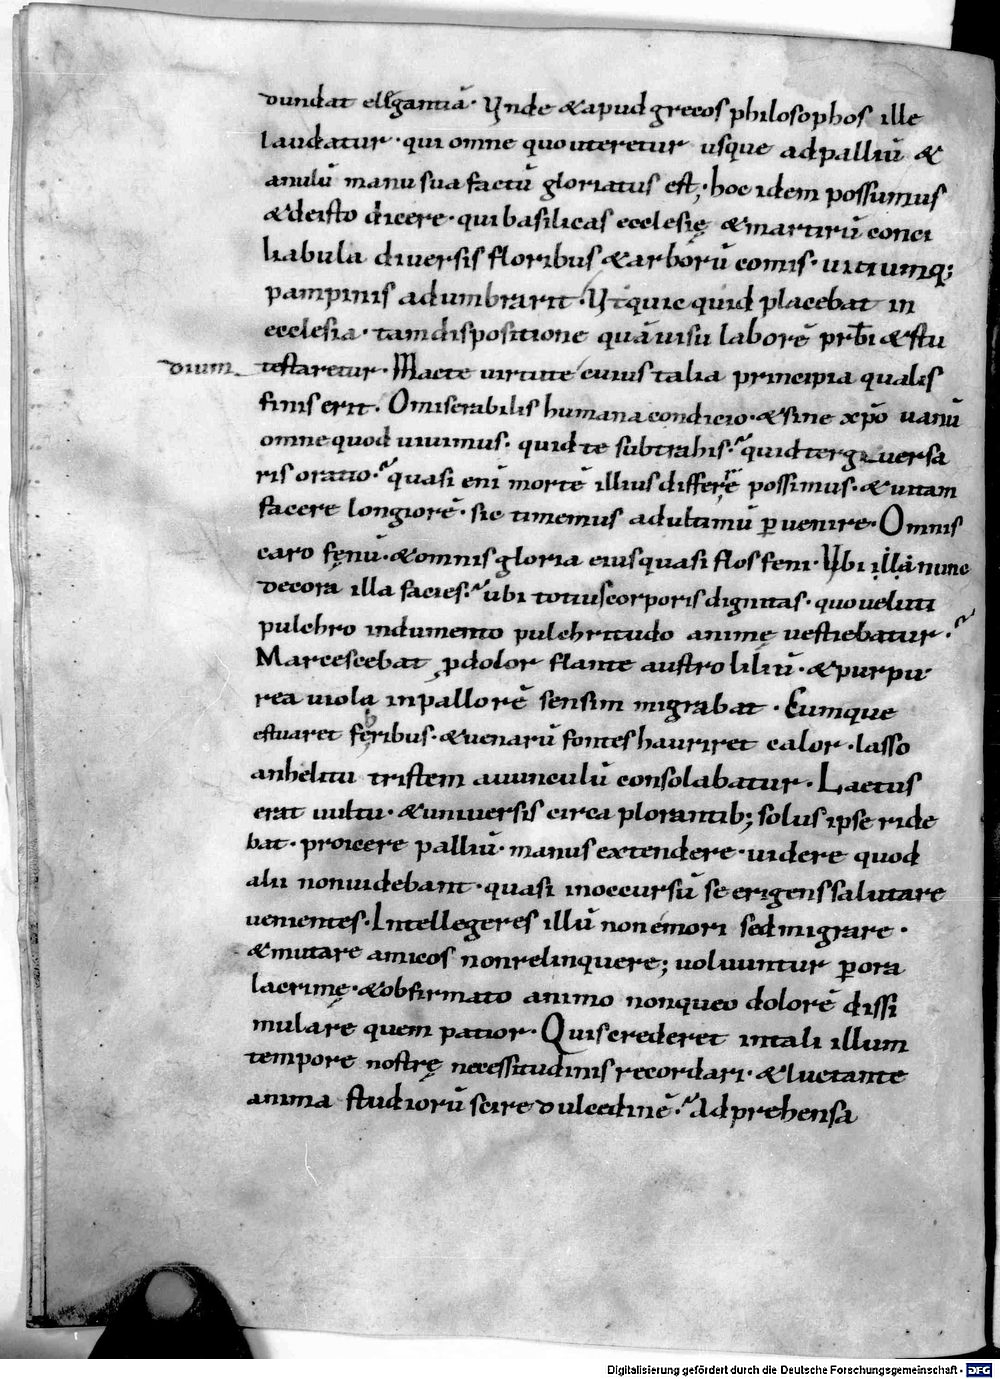 dundat elegantiā· Vnde & apud grecos philosophos ille
laudatur· qui omne quo uteretur usque ad palliū &
anulū manu sua factū gloriatus est; hoc idem possumus
& de isto dicere· qui basilicas ecclesię & martirū conci
liabula diuersis floribus & arborū comis· uitiumq;
pampinis adumbrarit· Vt quicquid placebat in
ecclesia· tam dispositione quā uisu laborē prb̄i & stu
dium testaretur· Macte uirtute cuius talia principia qualis
finis erit· O miserabilis humana condicio· & sine xp̄o uanū
omne quod uiuimus· quid te subtrahis· quid tergiuersa
ris oratio· quasi enī mortē illius differrē possimus· & uitam
facere longiorē· sic timemus ad ultimū puenire· Omnis
caro fęnū· & omnis gloria eius quasi flos feni· Vbi illa nunc
decora illa facies· ubi totius corporis dignitas· quo ueluti
pulchro indumento pulchritudo animę uestiebatur·
Marcescebat pdolor flante austro liliū· & purpu
rea uiola in pallorē sensim migrabat· Cumque
estuaret febribus· & uenarū fontes hauriret calor· lasso
anhelitu tristem auunculū consolabatur· Laetus
erat uultu· & uniuersis circa plorantib; solus ipse ride
bat· proicere palliū· manus extendere· uidere quod
alii non uidebant· quasi in occursū se erigens salutare
uenientes· Intellegeres illū non emori sed migrare·
& mutare amicos non relinquere; uoluuntur p ora
lacrimę· & obfirmato animo non queo dolorē dissi
mulare quem patior· Quis crederet in tali illum
tempore nostrę necessitudinis recordari· & luctante
anima studiorū scire dulcedinē· Adprehensa
Digitalisierung gefördert durch die Deutsche Forschungsgemeinschaft - DFG